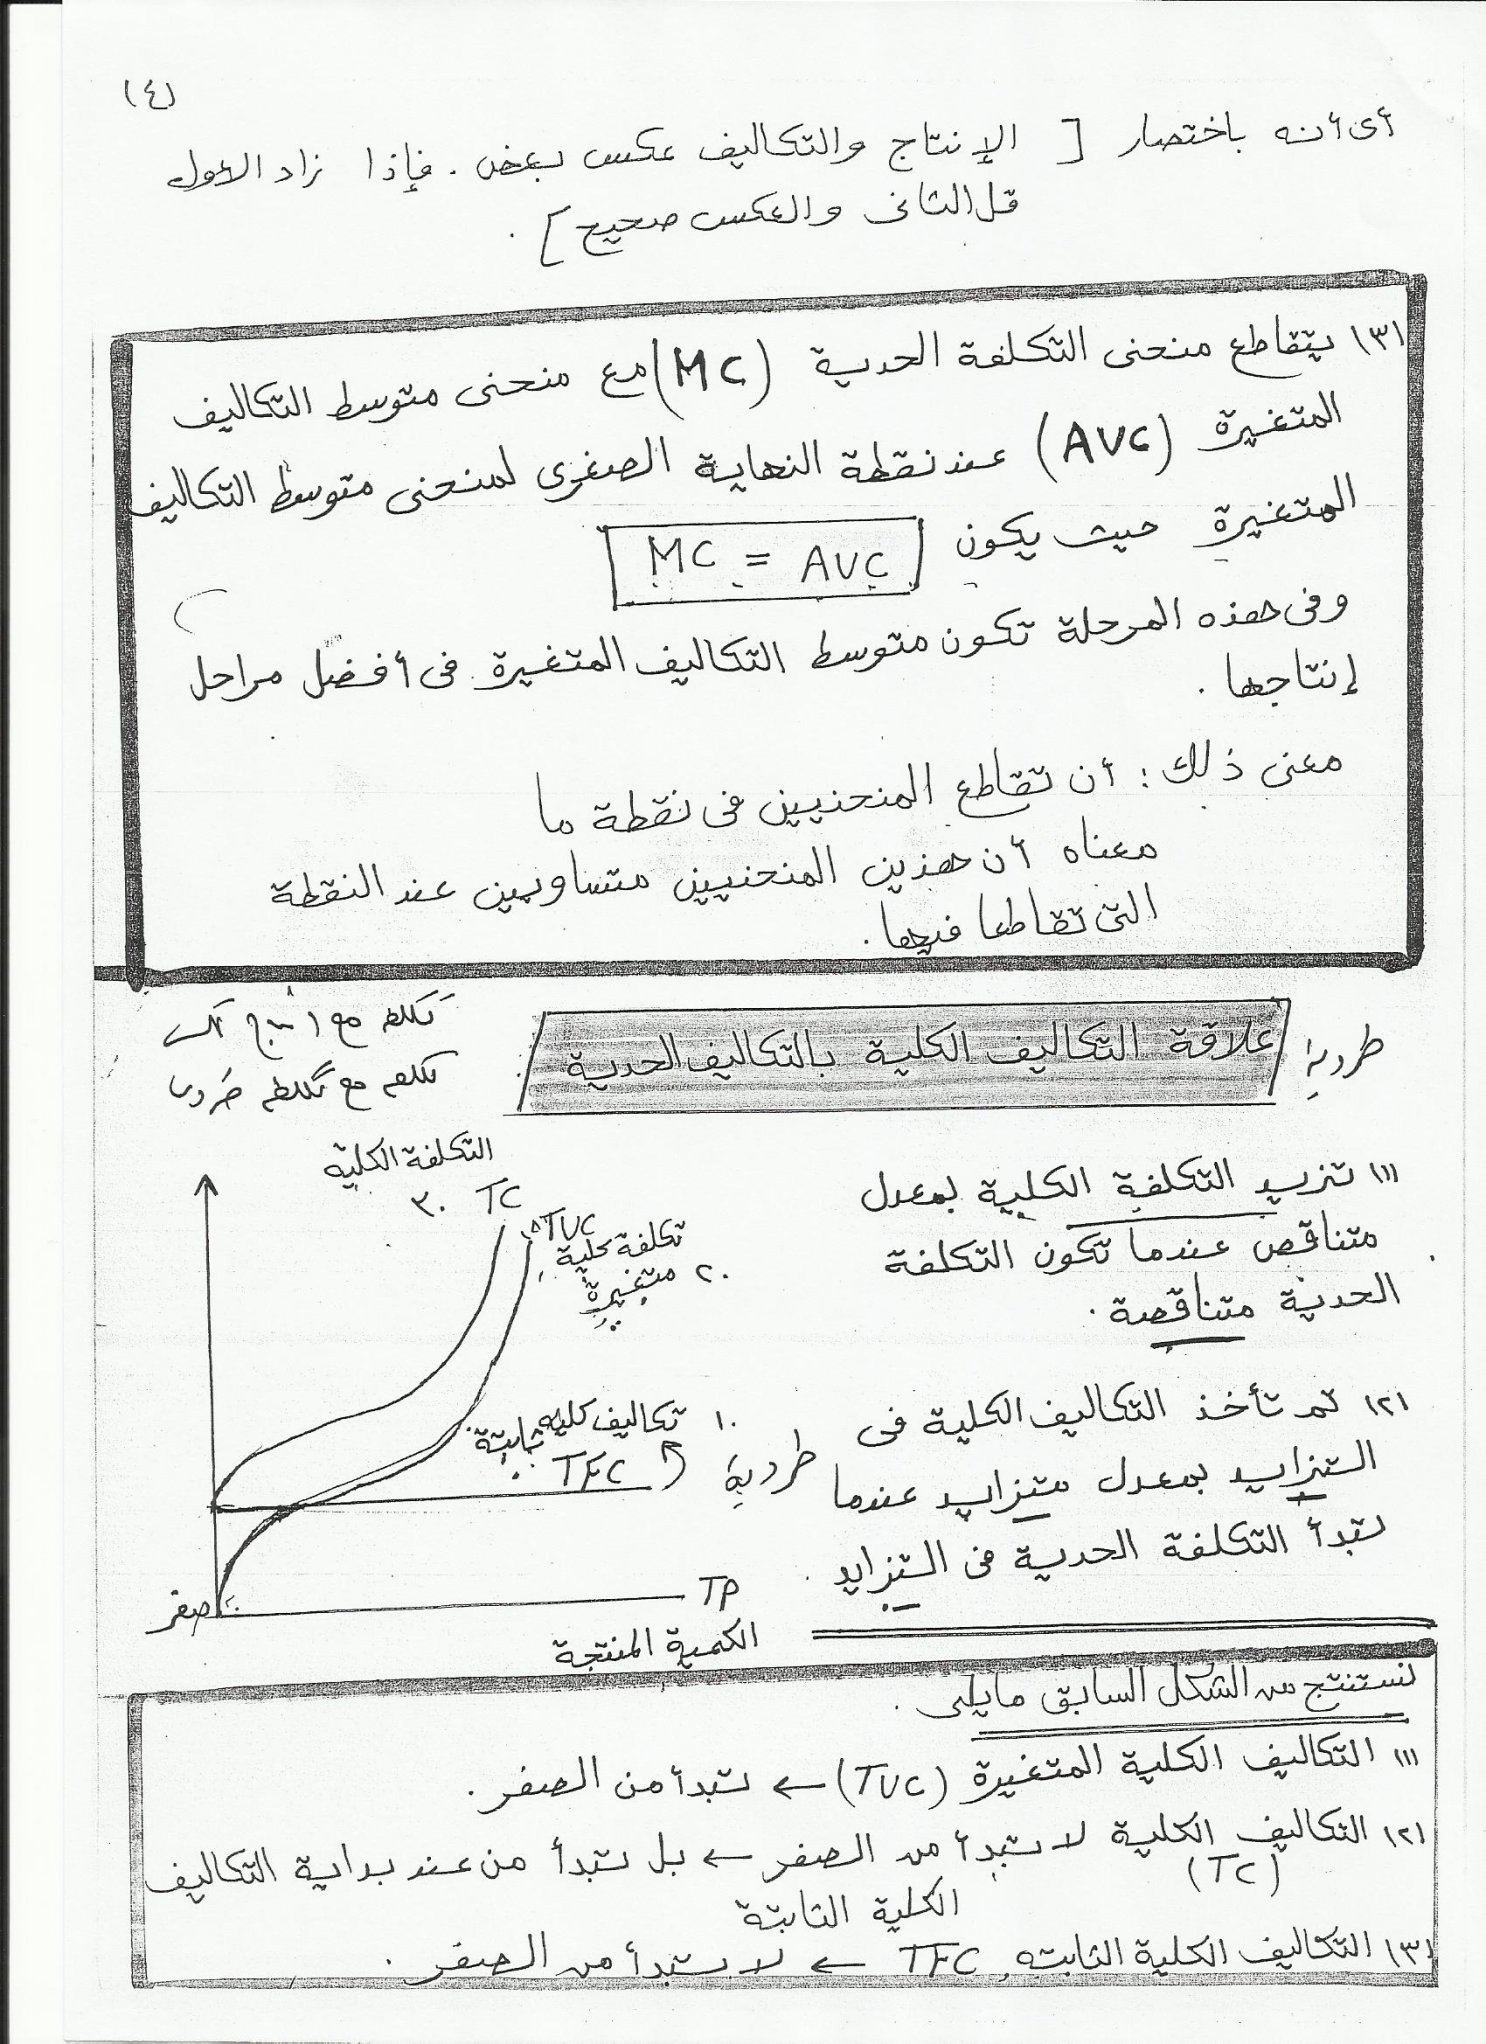 (٤)
أى أنه باختصار [ الإنتاج والتكاليف عكس بعض. فإذا زاد الأول
قل الثانى والعكس صحيح ].
(٣) يتقاطع منحنى التكلفة الحدية (MC) مع منحنى متوسط التكاليف
المتغيرة (AVC) عند نقطة النهاية الصغرى لمنحنى متوسط التكاليف
المتغيرة حيث يكون MC = AVC
وفى هذه المرحلة تكون متوسط التكاليف المتغيرة فى أفضل مراحل
إنتاجها.
معنى ذلك: أن تقاطع المنحنيين فى نقطة ما
معناه أن هذين المنحنيين متساويين عند النقطة
التى تقاطعا فيها.
طردية
علاقة التكاليف الكلية بالتكاليف الحدية
تكلفه مع
تكلفه مع تكلفه طردى
(١) تزيد التكلفة الكلية بمعدل
متناقص عندما تكون التكلفة
الحدية متناقصة.
(٢) ثم تأخذ التكاليف الكلية فى
التزايد بمعدل متزايد عندما
تبدأ التكلفة الحدية فى التزايد.
التكلفة الكلية
٣. TC
TVC
تكلفة كلية
٢. متغيرة
١. تكاليف كليه ثابتة
TFC
طردية
TP
صفر
الكمية المنتجة
نستنتج من الشكل السابق مايلى.
(١) التكاليف الكلية المتغيرة (TVC) ← تبدأ من الصفر.
(٢) التكاليف الكلية لا تبدأ من الصفر ← بل تبدأ من عند بداية التكاليف
(TC)
الكلية الثابتة
(٣) التكاليف الكلية الثابته TFC ← لا تبدأ من الصفر.